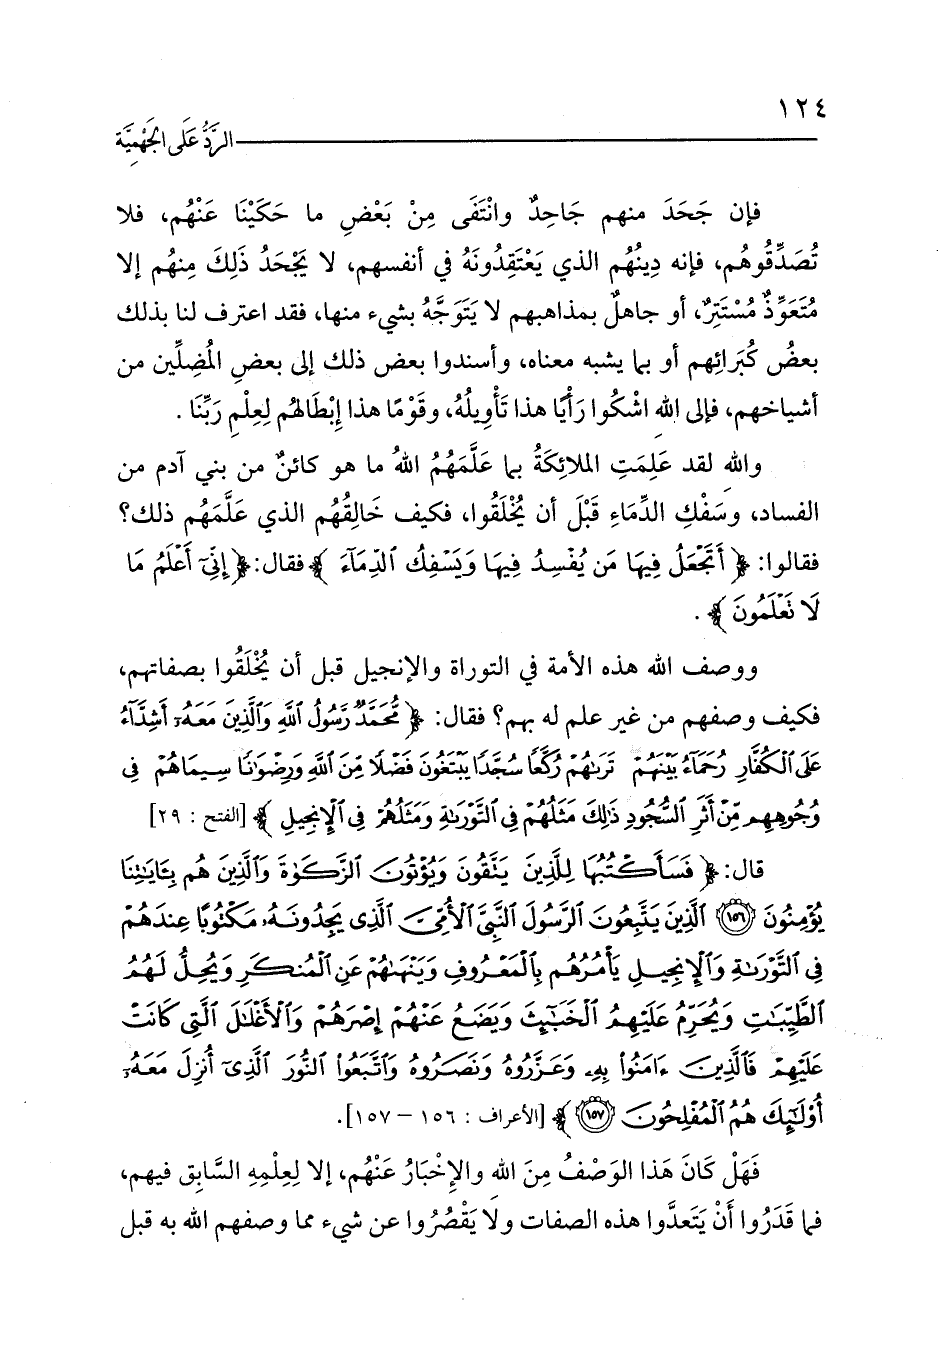 ١٢٤
الرَّدُّ عَلَى الجَهْمِيَّة
فإن جَحَدَ منهم جَاحِدٌ وانْتَفَى مِنْ بَعْضِ ما حَكَيْنَا عَنْهُم، فلا
تُصَدِّقُوهُم، فإنه دِينُهُم الذي يَعْتَقِدُونَهُ في أنفسهم، لا يَجْحَدُ ذَلِكَ مِنهُم إلا
مُتَعَوِّذٌ مُسْتَتِرٌ، أو جاهلٌ بمذاهبهم لا يَتَوَجَّهُ بشيء منها، فقد اعترف لنا بذلك
بعضُ كُبَرَائِهم أو بما يشبه معناه، وأسندوا بعض ذلك إلى بعضِ المُضِلِّين من
أشياخهم، فإلى اللهِ اشْكُوا رَأْيًا هذا تَأْوِيلُهُ، وقَوْمًا هذا إِبْطَالهُم لِعِلْمِ رَبِّنَا .
والله لقد عَلِمَتِ الملائكَةُ بما عَلَّمَهُمُ اللهُ ما هو كائنٌ من بني آدم من
الفساد، وسَفْكِ الدِّمَاءِ قَبْلَ أن يُخْلَقُوا، فكيف خَالِقُهُم الذي عَلَّمَهُم ذلك؟
فقالوا: ﴿ أَتَجْعَلُ فِيهَا مَن يُفْسِدُ فِيهَا وَيَسْفِكُ ٱلدِّمَآءَ ﴾ فقال: ﴿ إِنِّىٓ أَعْلَمُ مَا
لَا نَعْلَمُونَ ﴾ .
ووصف الله هذه الأمة في التوراة والإنجيل قبل أن يُخْلَقُوا بصفاتهم،
فكيف وصفهم من غير علم له بهم؟ فقال: ﴿ مُّحَمَّدٌ رَّسُولُ ٱللَّهِ وَٱلَّذِينَ مَعَهُۥٓ أَشِدَّآءُ
عَلَى ٱلْكُفَّارِ رُحَمَآءُ بَيْنَهُمْ تَرَىٰهُمْ رُكَّعًا سُجَّدًا يَبْتَغُونَ فَضْلًا مِّنَ ٱللَّهِ وَرِضْوَٰنًا سِيمَاهُمْ فِى
وُجُوهِهِم مِّنْ أَثَرِ ٱلسُّجُودِ ذَٰلِكَ مَثَلُهُمْ فِى ٱلتَّوْرَىٰةِ وَمَثَلُهُمْ فِى ٱلْإِنجِيلِ ﴾ [الفتح : ٢٩]
قال: ﴿ فَسَأَكْتُبُهَا لِلَّذِينَ يَتَّقُونَ وَيُؤْتُونَ ٱلزَّكَوٰةَ وَٱلَّذِينَ هُم بِـَٔايَـٰتِنَا
يُؤْمِنُونَ ۝١٥٦ ٱلَّذِينَ يَتَّبِعُونَ ٱلرَّسُولَ ٱلنَّبِىَّ ٱلْأُمِّىَّ ٱلَّذِى يَجِدُونَهُۥ مَكْتُوبًا عِندَهُمْ
فِى ٱلتَّوْرَىٰةِ وَٱلْإِنجِيلِ يَأْمُرُهُم بِٱلْمَعْرُوفِ وَيَنْهَىٰهُمْ عَنِ ٱلْمُنكَرِ وَيُحِلُّ لَهُمُ
ٱلطَّيِّبَـٰتِ وَيُحَرِّمُ عَلَيْهِمُ ٱلْخَبَـٰٓئِثَ وَيَضَعُ عَنْهُمْ إِصْرَهُمْ وَٱلْأَغْلَـٰلَ ٱلَّتِى كَانَتْ
عَلَيْهِمْ فَٱلَّذِينَ ءَامَنُوا۟ بِهِۦ وَعَزَّرُوهُ وَنَصَرُوهُ وَٱتَّبَعُوا۟ ٱلنُّورَ ٱلَّذِىٓ أُنزِلَ مَعَهُۥٓ
أُو۟لَـٰٓئِكَ هُمُ ٱلْمُفْلِحُونَ ۝١٥٧ ﴾ [الأعراف : ١٥٦ – ١٥٧].
فَهَلْ كَانَ هَذا الوَصْفُ مِنَ اللهِ والإِخْبَارُ عَنْهُم، إلا لِعِلْمِهِ السَّابِق فيهم،
فما قَدَرُوا أَنْ يَتَعدَّوا هذه الصفات ولا يَقْصُرُوا عن شيء مما وصفهم الله به قبل